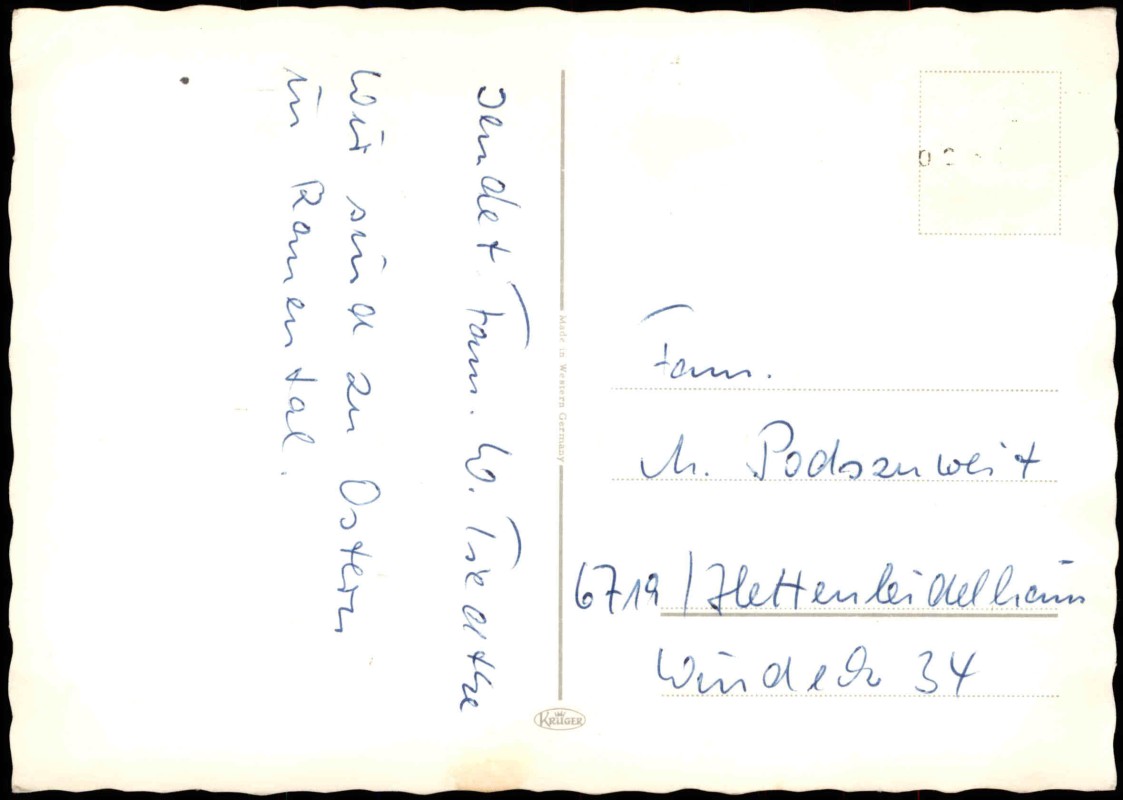 sendet Fam. W. Tiedtke
Wir sind zu Ostern
in Ramental.
Made in Western Germany
KRÜGER
Fam.
M. Podszuweit
6719/Hettenleidelheim
Windeck 34